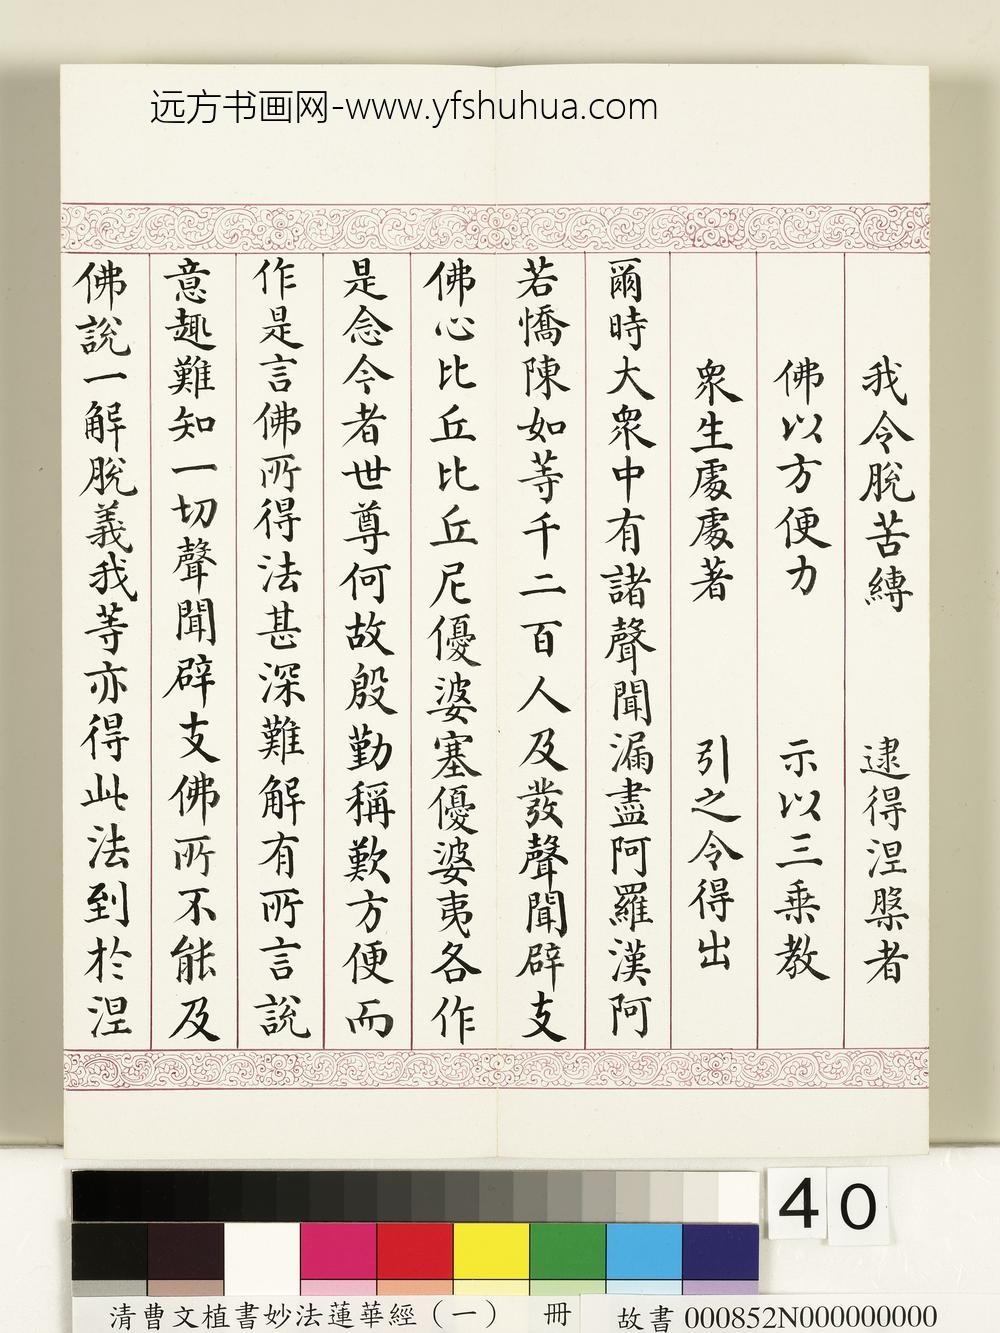 远方书画网-www.yfshuhua.com
我令脫苦縛 逮得涅槃者
佛以方便力 示以三乗教
衆生處處著 引之令得出
爾時大衆中有諸聲聞漏盡阿羅漢阿
若憍陳如等千二百人及發聲聞辟支
佛心比丘比丘尼優婆塞優婆夷各作
是念今者世尊何故殷勤稱歎方便而
作是言佛所得法甚深難解有所言說
意趣難知一切聲聞辟支佛所不能及
佛說一解脫義我等亦得此法到於涅
40
清曹文植書妙法蓮華經（一） 冊 故書000852N000000000